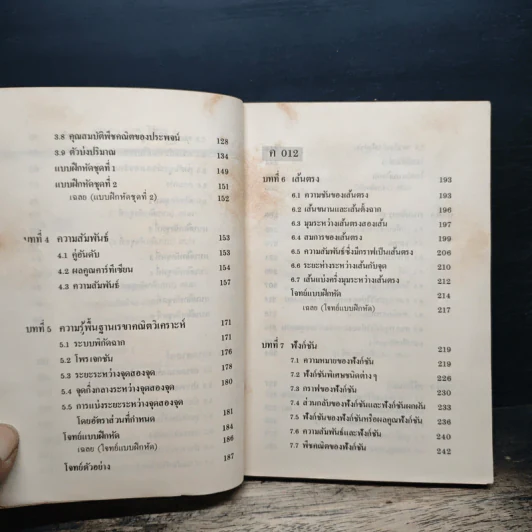 3.8 คุณสมบัติพีชคณิตของประพจน์ 128
3.9 ตัวบ่งปริมาณ 134
แบบฝึกหัดชุดที่ 1 149
แบบฝึกหัดชุดที่ 2 151
เฉลย (แบบฝึกหัดชุดที่ 2) 152
บทที่ 4 ความสัมพันธ์ 153
4.1 คู่อันดับ 153
4.2 ผลคูณคาร์ทีเซียน 154
4.3 ความสัมพันธ์ 157
บทที่ 5 ความรู้พื้นฐานเรขาคณิตวิเคราะห์ 171
5.1 ระบบพิกัดฉาก 171
5.2 โพรเจกชัน 176
5.3 ระยะระหว่างจุดสองจุด 178
5.4 จุดกึ่งกลางระหว่างจุดสองจุด 180
5.5 การแบ่งระยะระหว่างจุดสองจุด
โดยอัตราส่วนที่กำหนด 181
โจทย์แบบฝึกหัด 184
เฉลย (โจทย์แบบฝึกหัด) 186
โจทย์ตัวอย่าง 187
ค 012
บทที่ 6 เส้นตรง 193
6.1 ความชันของเส้นตรง 193
6.2 เส้นขนานและเส้นตั้งฉาก 196
6.3 มุมระหว่างเส้นตรงสองเส้น 197
6.4 สมการของเส้นตรง 199
6.5 ความสัมพันธ์ซึ่งมีกราฟเป็นเส้นตรง 206
6.6 ระยะห่างระหว่างเส้นกับจุด 210
6.7 เส้นแบ่งครึ่งมุมระหว่างเส้นตรง 212
โจทย์แบบฝึกหัด 214
เฉลย (โจทย์แบบฝึกหัด) 217
บทที่ 7 ฟังก์ชัน 219
7.1 ความหมายของฟังก์ชัน 219
7.2 ฟังก์ชันพิเศษชนิดต่างๆ 226
7.3 กราฟของฟังก์ชัน 230
7.4 ส่วนกลับของฟังก์ชันและฟังก์ชันผกผัน 233
7.5 ฟังก์ชันของฟังก์ชันหรือผลคูณฟังก์ชัน 236
7.6 ความสัมพันธ์และฟังก์ชัน 240
7.7 พีชคณิตของฟังก์ชัน 242